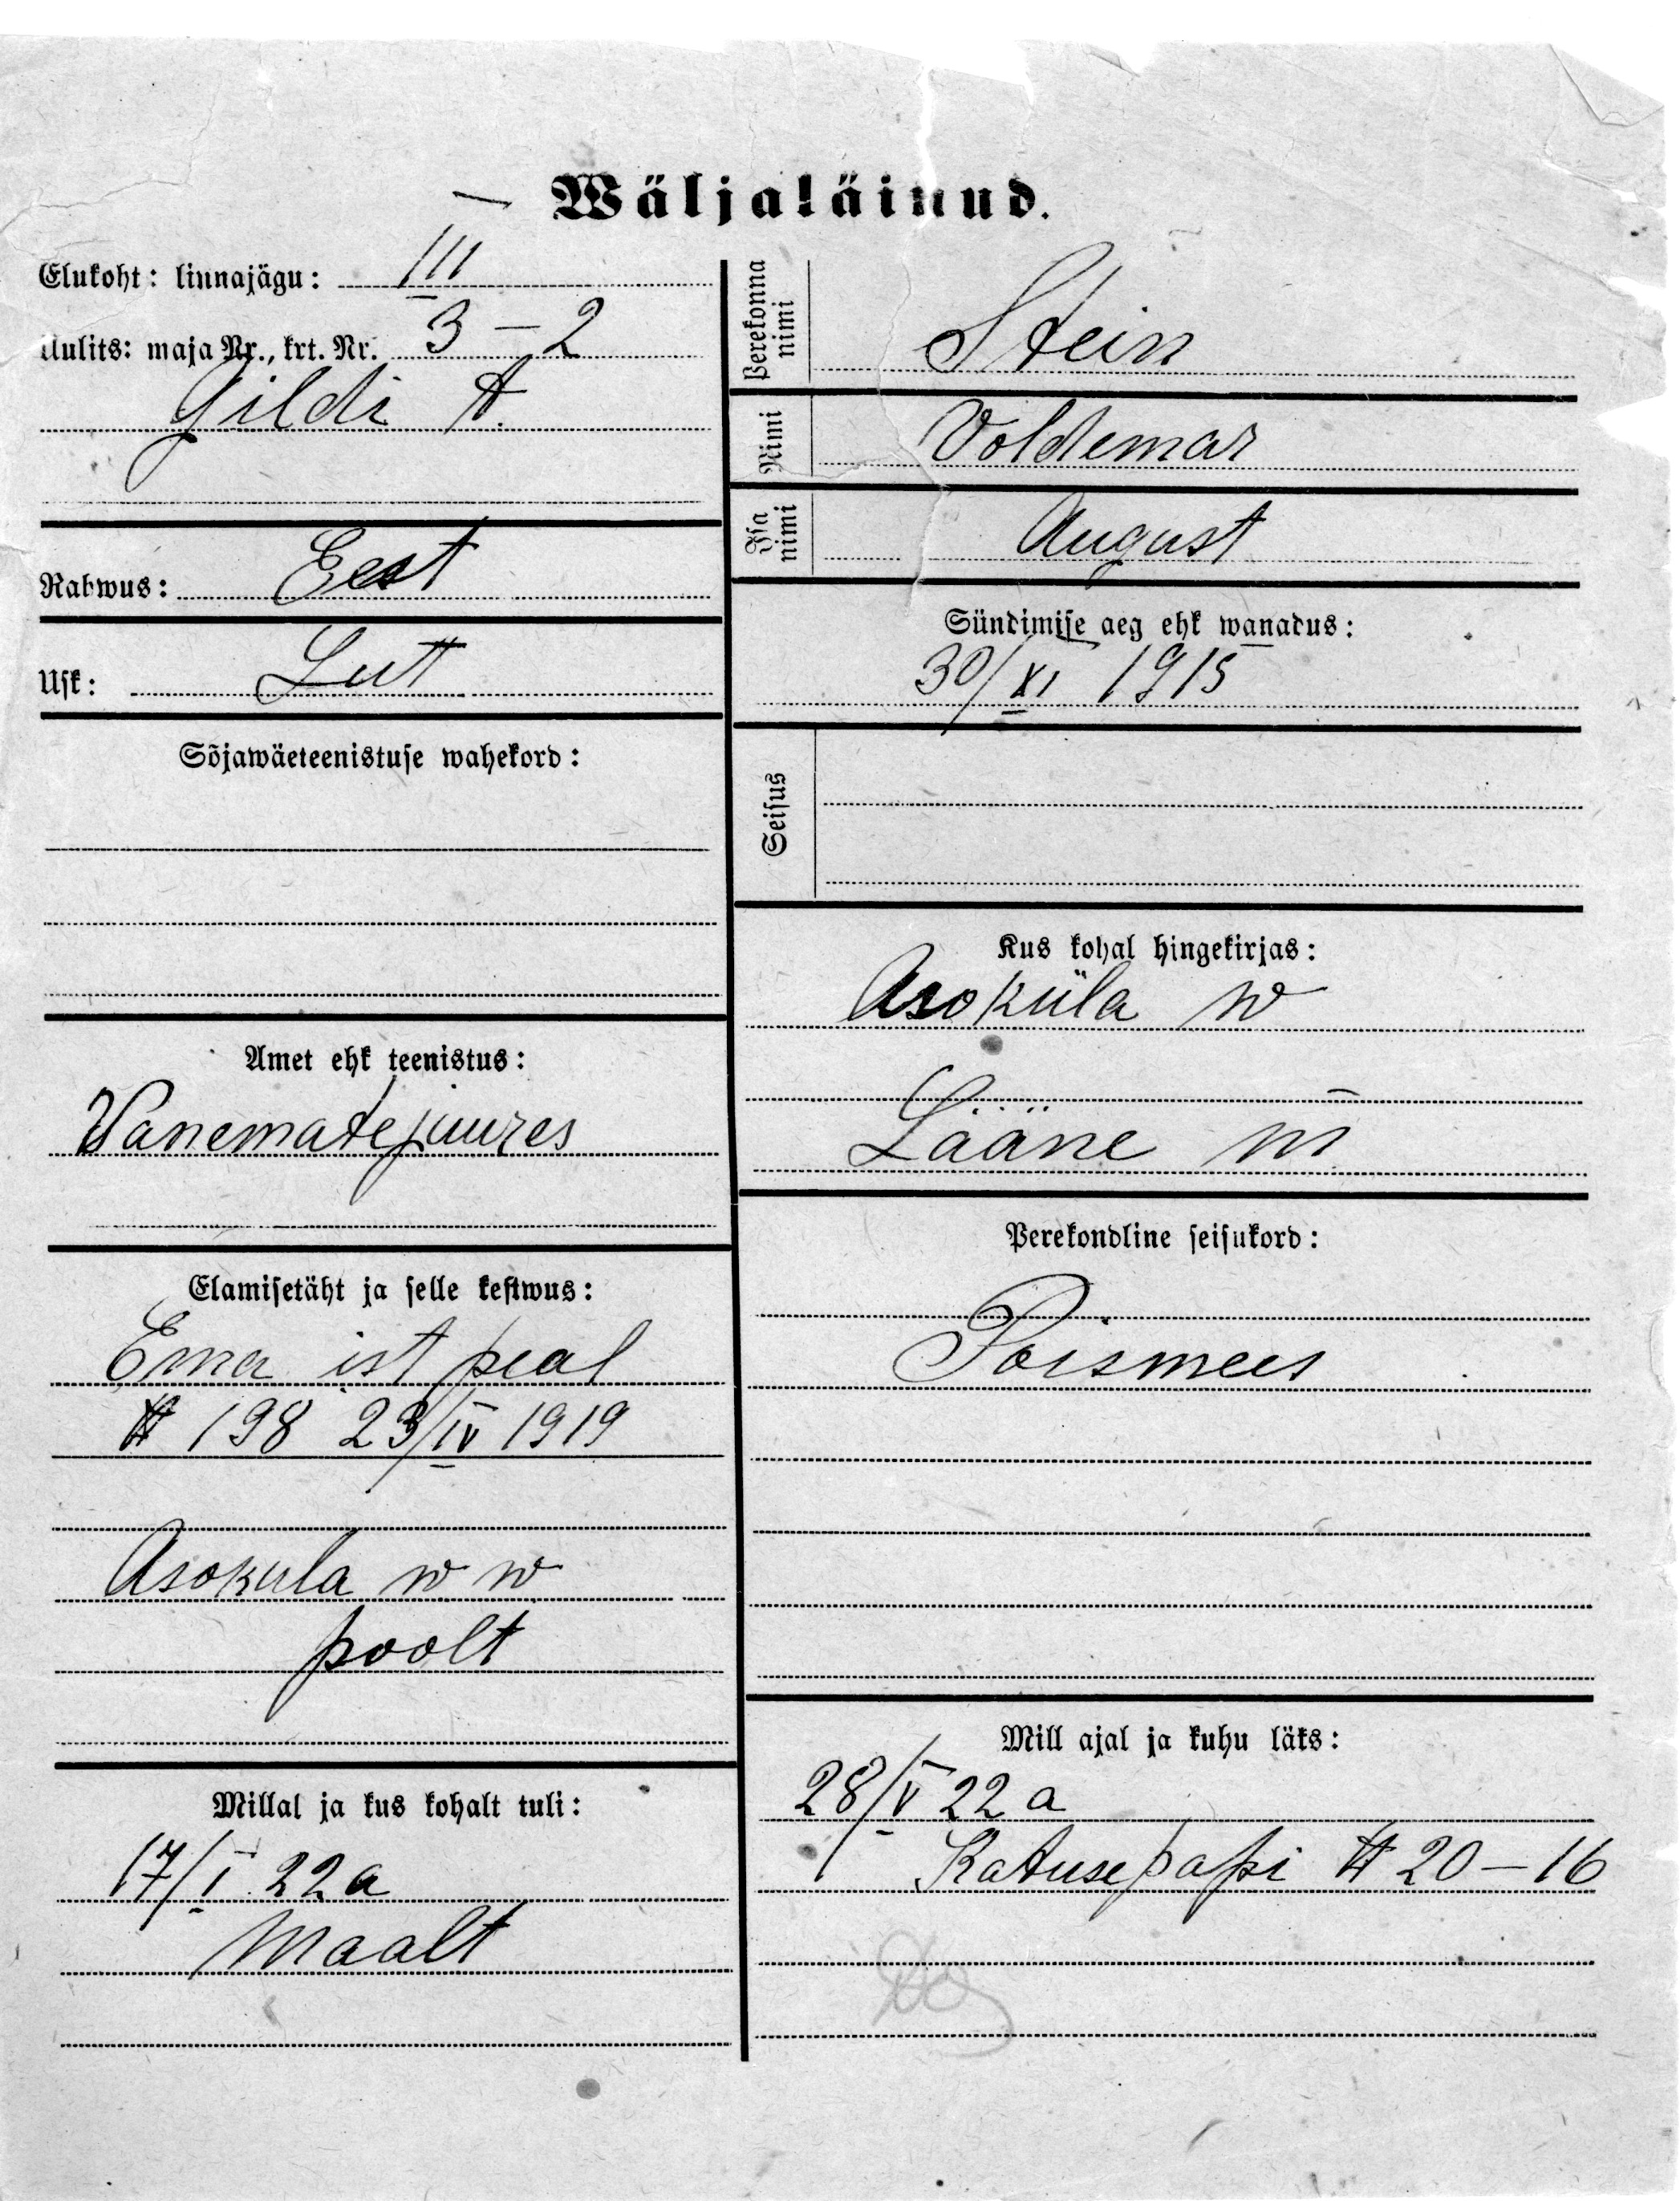 Wäljaläinud.
Elukoht: linnajägu: III
Uulits: maja Nr., krt. Nr. 3 – 2
Gildi t.
Rahwus: Eest
Usk: Lutt
Sõjawäeteenistuse wahekord:
Amet ehk teenistus:
Vanematejuures
Elamisetäht ja selle kestwus:
Ema ist peal
№ 198 23/IV 1919
Asokula w w
poolt
Millal ja kus kohalt tuli:
17/I 22 a
Maalt
Perekonna nimi Stein
Nimi Voldemar
Isa nimi August
Sündimise aeg ehk wanadus:
30/XI 1915
Seisus
Kus kohal hingekirjas:
Asoküla w
Lääne m
Perekondline seisukord:
Poismees
Mill ajal ja kuhu läks:
28/V 22 a
Katusepapi № 20 – 16